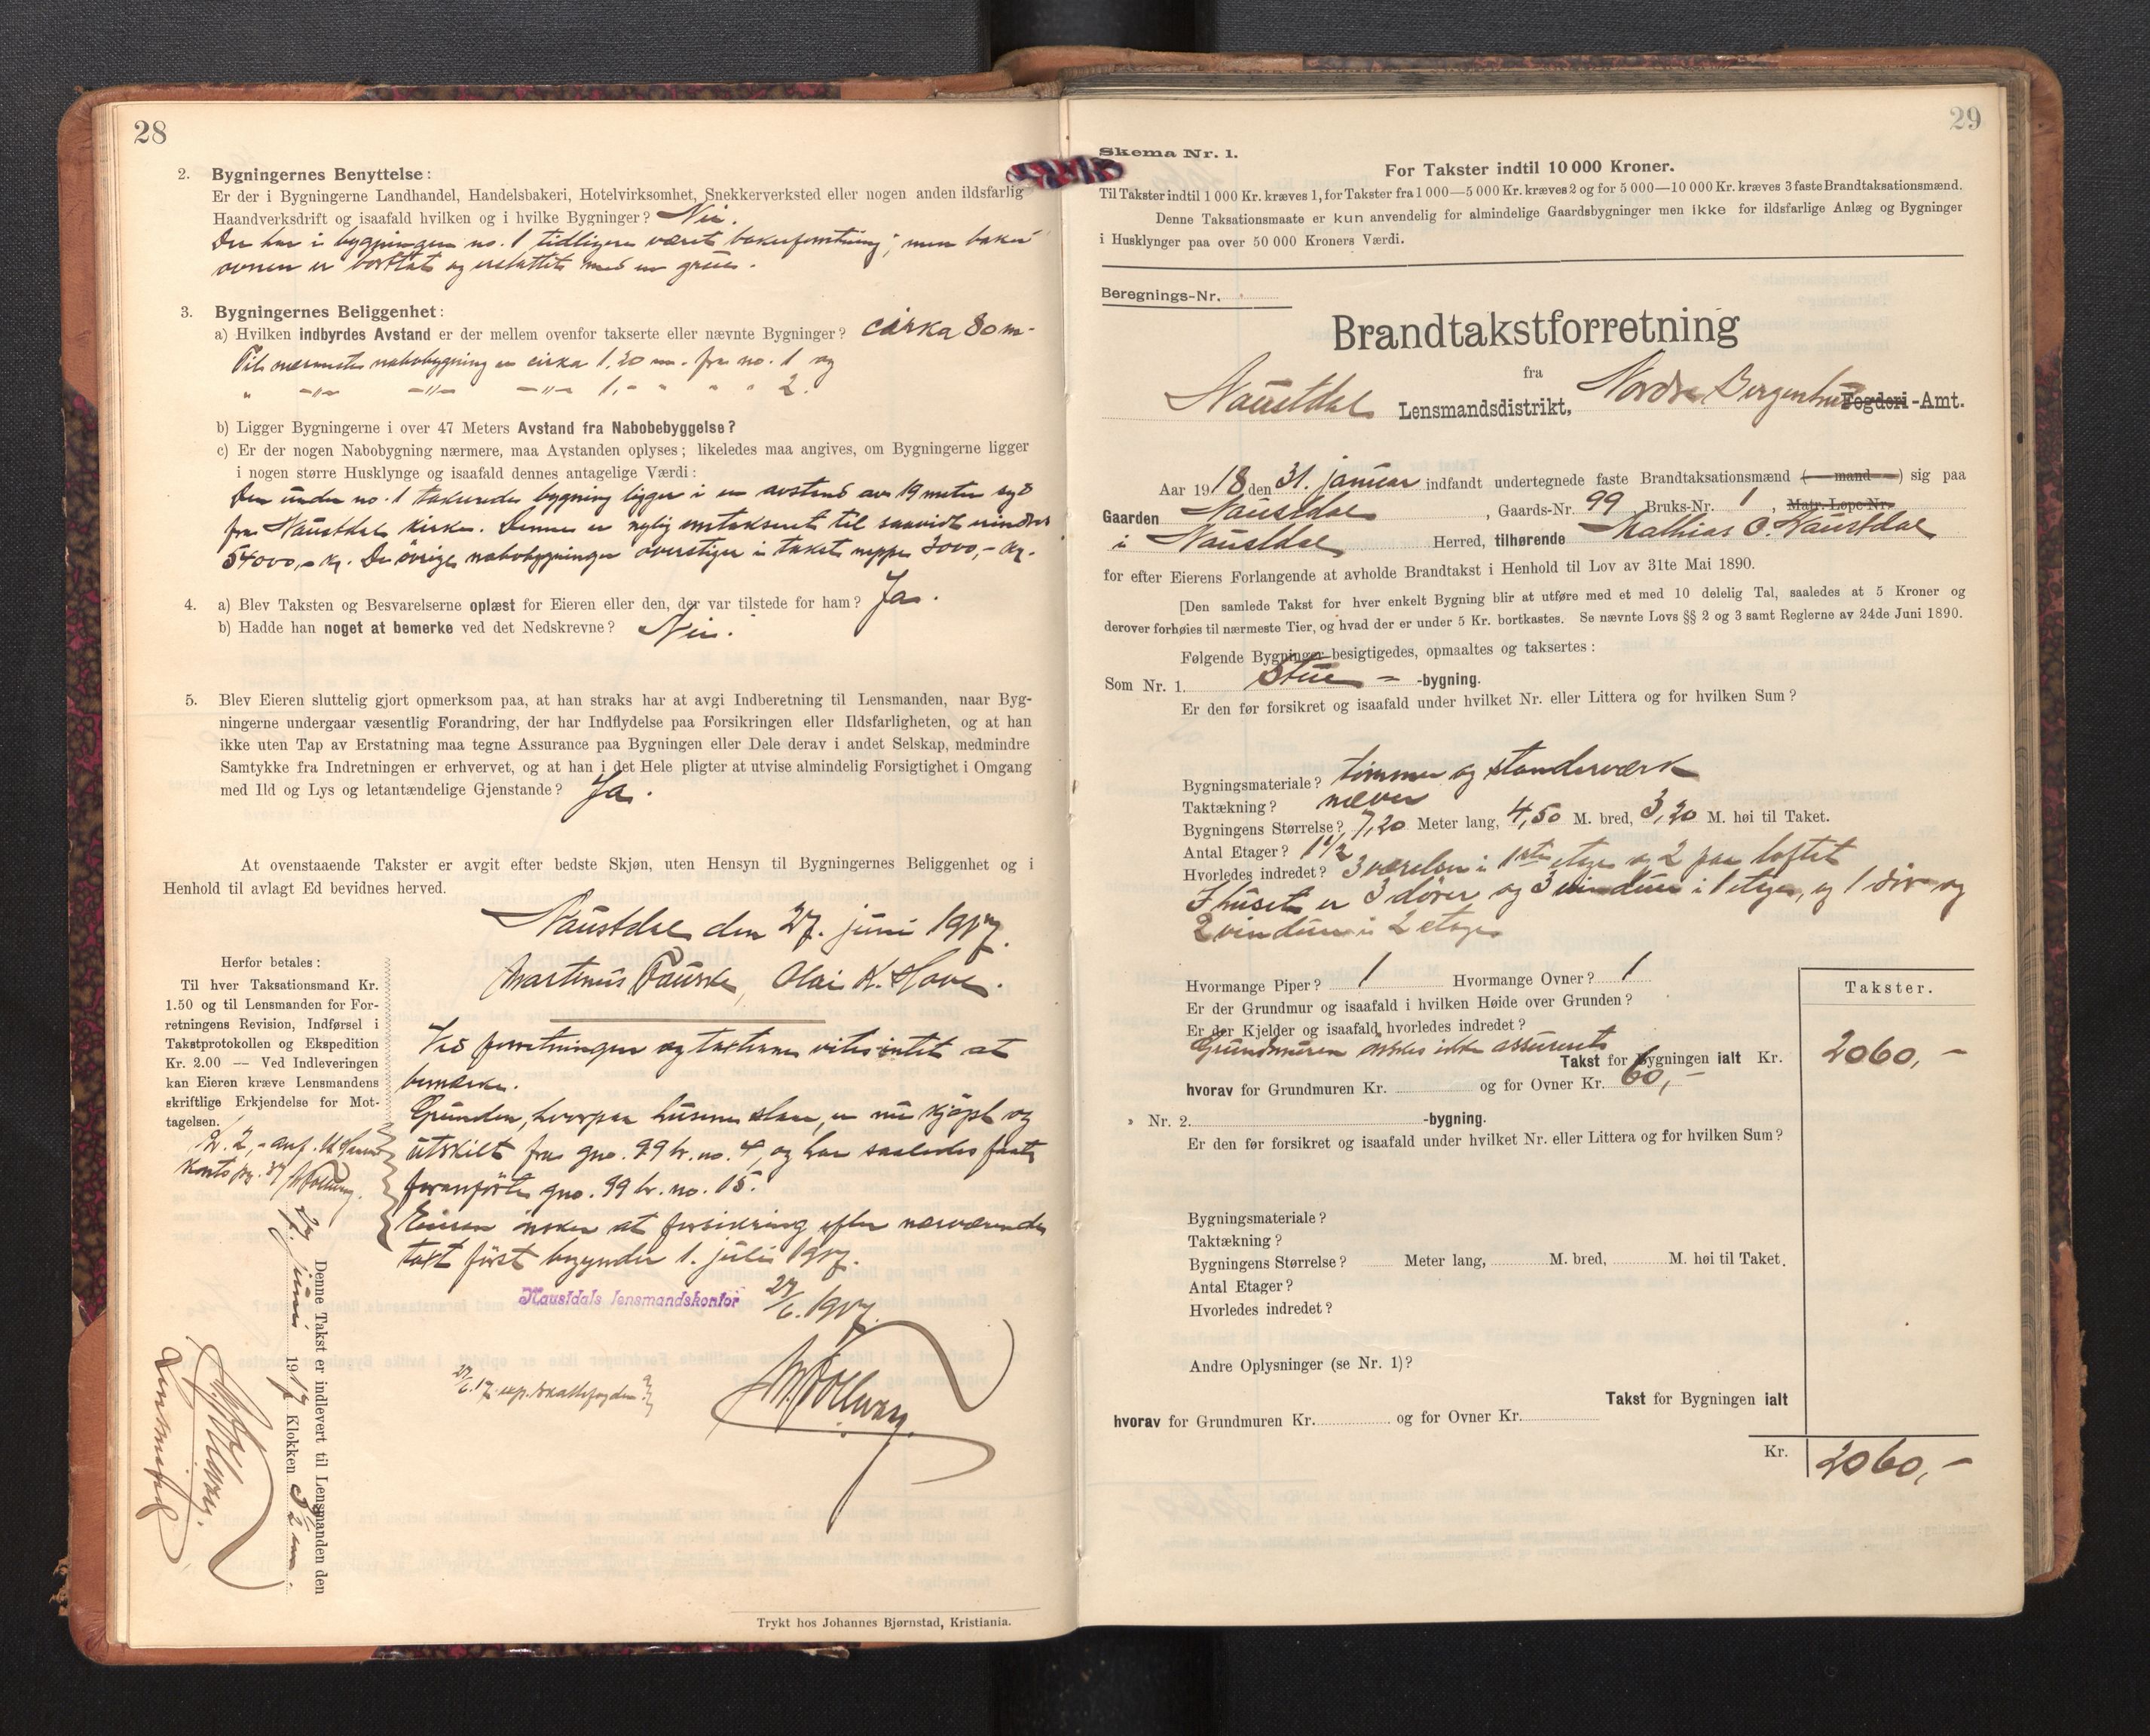 28
2. Bygningernes Benyttelse:
Er der i Bygningerne Landhandel, Handelsbakeri, Hotelvirksomhet, Snekkerverksted eller nogen anden ildsfarlig
Haandverksdrift og isaafald hvilken og i hvilke Bygninger? Nei.
Der har i bygningen no. 1 tidligere været bakerforretning; men baker
ovnen er borttat og erstattet med en grue.
3. Bygningernes Beliggenhet:
a) Hvilken indbyrdes Avstand er der mellem ovenfor takserte eller nævnte Bygninger? cirka 80 m.
Til nærmeste nabobygning er cirka 1,20 m. fra no. 1 og
" -"- -"- -"- 1,- " " " 2.
b) Ligger Bygningerne i over 47 Meters Avstand fra Nabobebyggelse?
c) Er der nogen Nabobygning nærmere, maa Avstanden oplyses; likeledes maa angives, om Bygningerne ligger
i nogen større Husklynge og isaafald dennes antagelige Værdi:
Den under no. 1 takserede bygning ligger i en avstand av 19 meter syd
fra Naustdal kirke. Denne er nylig omtakseret til saavidt erindres
54000,- kr. De øvrige nabobygninger overstiger i takst neppe 3000,- kr.
4. a) Blev Taksten og Besvarelserne oplæst for Eieren eller den, der var tilstede for ham? Ja.
b) Hadde han noget at bemerke ved det Nedskrevne? Nei.
5. Blev Eieren sluttelig gjort opmerksom paa, at han straks har at avgi Indberetning til Lensmanden, naar Byg-
ningerne undergaar væsentlig Forandring, der har Indflydelse paa Forsikringen eller Ildsfarligheten, og at han
ikke uten Tap av Erstatning maa tegne Assurance paa Bygningen eller Dele derav i andet Selskap, medmindre
Samtykke fra Indretningen er erhvervet, og at han i det Hele pligter at utvise almindelig Forsigtighet i Omgang
med Ild og Lys og letantændelige Gjenstande? Ja.
At ovenstaaende Takster er avgit efter bedste Skjøn, uten Hensyn til Bygningernes Beliggenhet og i
Henhold til avlagt Ed bevidnes herved.
Naustdal den 27. juni 1917.
Martinus Fauske, Olai K. Hove.
Herfor betales:
Til hver Taksationsmand Kr.
1.50 og til Lensmanden for For-
retningens Revision, Indførsel i
Takstprotokollen og Ekspedition
Kr. 2.00 — Ved Indleveringen
kan Eieren kræve Lensmandens
skriftlige Erkjendelse for Mot-
tagelsen.
Ved forretningen og taksterne vites intet at
bemærke.
Grunden, hvorpaa husene staar, er nu kjøpt og
utskilt fra gno. 99 br. no. 4, og har saaledes faat
foranførte gno. 99 br. no. 15.
Eieren ønsker at forsikring efter nærværende
takst først begynder 1. juli 1917.
Naustdals lensmandskontor 27/6. 1917.
Denne Takst er indlevert til Lensmanden den
27. juni 1917 Klokken
Lensmand
Trykt hos Johannes Bjørnstad, Kristiania.
29
Skema Nr. 1.
For Takster indtil 10 000 Kroner.
Til Takster indtil 1 000 Kr. kræves 1, for Takster fra 1 000—5 000 Kr. kræves 2 og for 5 000—10 000 Kr. kræves 3 faste Brandtaksationsmænd.
Denne Taksationsmaate er kun anvendelig for almindelige Gaardsbygninger men ikke for ildsfarlige Anlæg og Bygninger
i Husklynger paa over 50 000 Kroners Værdi.
Beregnings-Nr.
Brandtakstforretning
fra
Naustdal Lensmandsdistrikt, Nordre Bergenhus Fogderi-Amt.
Aar 1918 den 31. januar indfandt undertegnede faste Brandtaksationsmænd (—mand—) sig paa
Gaarden Naustdal, Gaards-Nr. 99 Bruks-Nr. 1, Matr. Løpe-Nr.
i Naustdal Herred, tilhørende Mathias O. Naustdal
for efter Eierens Forlangende at avholde Brandtakst i Henhold til Lov av 31te Mai 1890.
[Den samlede Takst for hver enkelt Bygning blir at utføre med et med 10 delelig Tal, saaledes at 5 Kroner og
derover forhøies til nærmeste Tier, og hvad der er under 5 Kr. bortkastes. Se nævnte Lovs §§ 2 og 3 samt Reglerne av 24de Juni 1890.
Følgende Bygninger besigtigedes, opmaaltes og taksertes:
Som Nr. 1. Stue - -bygning.
Er den før forsikret og isaafald under hvilket Nr. eller Littera og for hvilken Sum?
Bygningsmateriale? tømmer og standerværk
Taktækning? næver
Bygningens Størrelse? 7,20 Meter lang, 4,50 M. bred, 3,20 M. høi til Taket.
Antal Etager? 1 1/2
Hvorledes indredet? 3 værelser i 1ste etage og 2 paa loftet
I huset er 3 dører og 3 vinduer i 1 etage, og 1 dør og
2 vinduer i 2 etage
Hvormange Piper? 1 Hvormange Ovner? 1
Er der Grundmur og isaafald i hvilken Høide over Grunden?
Er der Kjelder og isaafald hvorledes indredet?
Grundmuren ønskes ikke assureret
Takster.
Takst for Bygningen ialt Kr. 2060,-
hvorav for Grundmuren Kr. og for Ovner Kr. 60,-
" Nr. 2. -bygning.
Er den før forsikret og isaafald under hvilket Nr. eller Littera og for hvilken Sum?
Bygningsmateriale?
Taktækning?
Bygningens Størrelse? Meter lang, M. bred, M. høi til Taket.
Antal Etager?
Hvorledes indredet?
Andre Oplysninger (se Nr. 1)?
Takst for Bygningen ialt
hvorav for Grundmuren Kr. og for Ovner Kr.
Kr. 2060,-